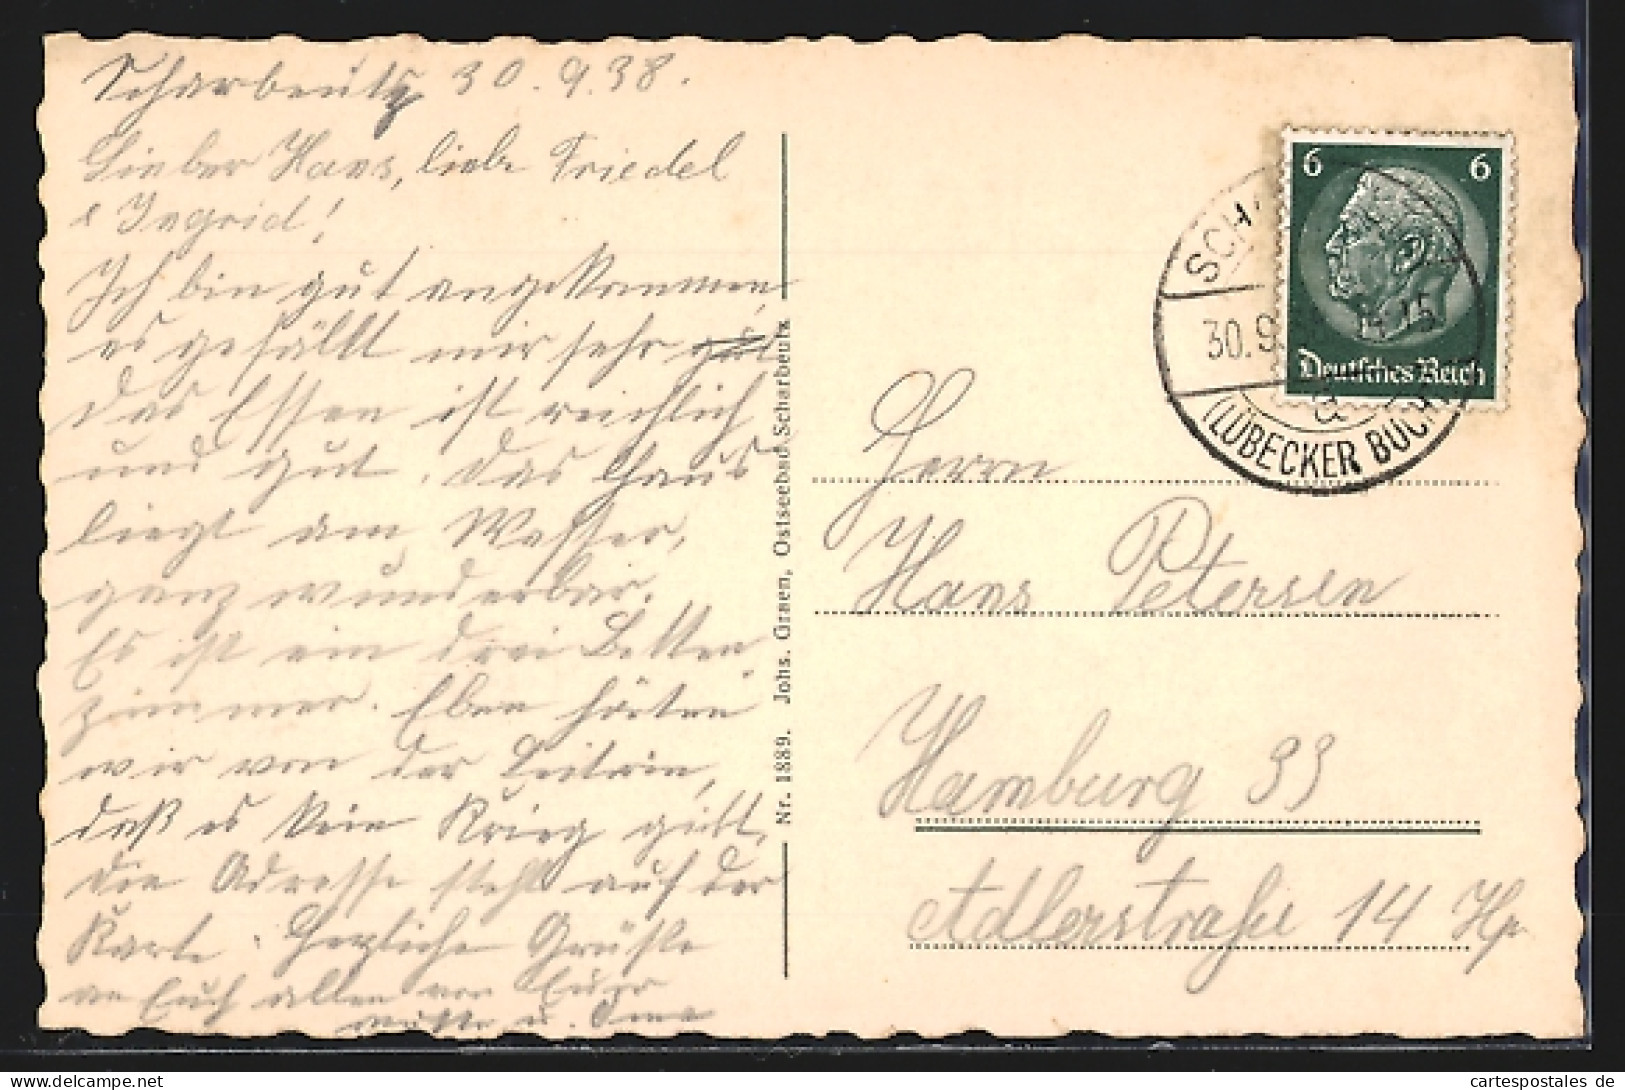 Scharbeutz 30.9.38.
Lieber Hans, liebe Friedel
& Ingrid!
Ich bin gut angekommen,
es gefällt mir sehr gut
das Essen ist reichlich
und gut. Das Haus
liegt am Wasser,
ganz wunderbar.
Es ist ein drei Betten
zimmer. Eben hörten
wir von der Leiterin,
daß es kein Krieg gibt,
die Adresse steht auf der
Karte. Herzliche Grüße
an Euch allen von Eurer
Mutter u. Oma
Nr. 1889. Johs. Graen, Ostseebad Scharbeutz
6 6
Deutsches Reich
SCH
30.9. 14-15
a
(LÜBECKER BUCH
Herrn
Hans Petersen
Hamburg 33
Adlerstraße 14 Hp.
cartespostales.de